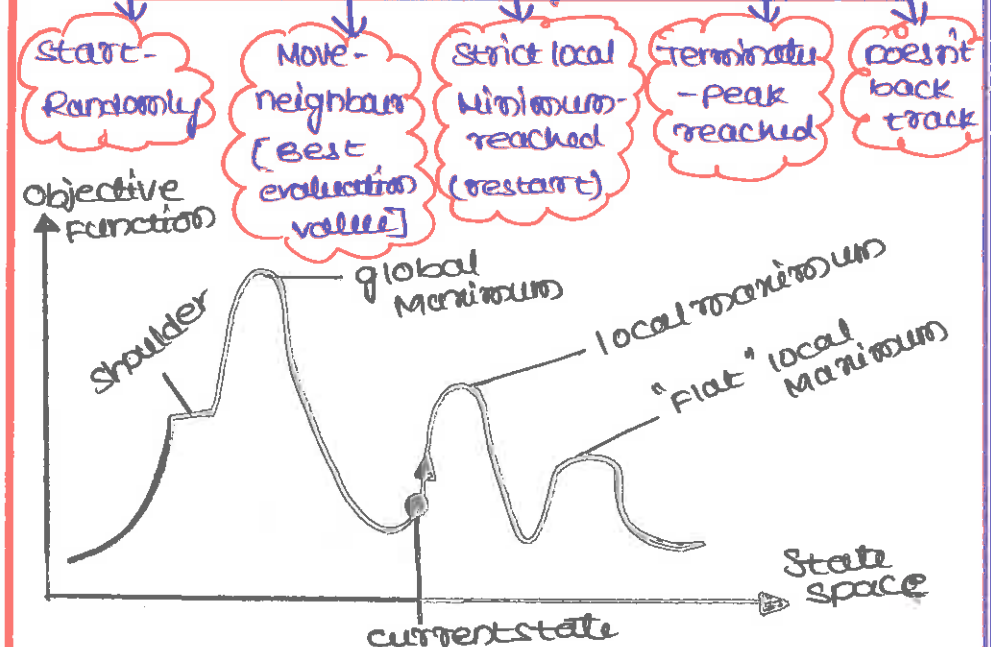 Start-
Randomly
Move-
neighbour
[Best
evaluation
value]
Strict local
Minimum-
reached
(restart)
Terminate
-Peak
reached
Doesn't
back
track
Objective
Function
Shoulder
global
Maximum
local maximum
"Flat" local
Maximum
State
space
current state